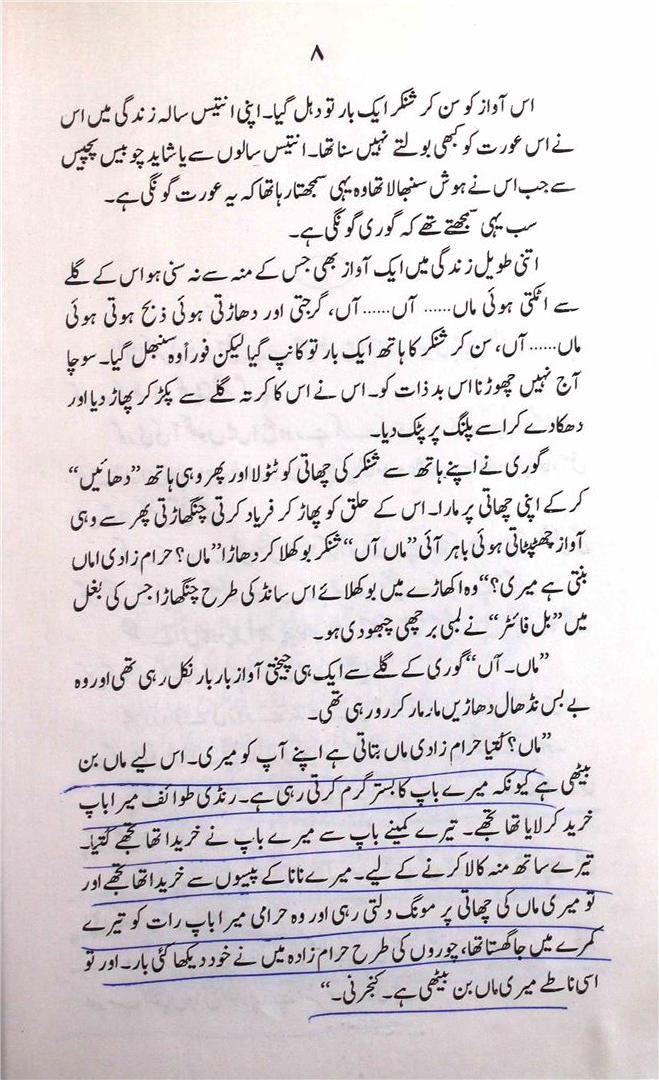 ۸
اس آواز کو سن کر شنکر ایک بار تو دہل گیا۔ اپنی انتیس سالہ زندگی میں اس
نے اس عورت کو کبھی بولتے نہیں سنا تھا۔ انتیس سالوں سے یا شاید چوبیس پچیس
سے جب اس نے ہوش سنبھالا تھا وہ یہی سمجھتا رہا تھا کہ یہ عورت گونگی ہے۔
سب یہی سمجھتے تھے کہ گوری گونگی ہے۔
اتنی طویل زندگی میں ایک آواز بھی جس کے منہ سے نہ سنی ہو اس کے گلے
سے اٹکتی ہوئی ماں...... آں...... آں، گرجتی اور دھاڑتی ہوئی ذبح ہوتی ہوئی
ماں...... آں، سن کر شنکر کا ہاتھ ایک بار تو کانپ گیا لیکن فوراً وہ سنبھل گیا۔ سوچا
آج نہیں چھوڑنا اس بد ذات کو۔ اس نے اس کا کرتہ گلے سے پکڑ کر پھاڑ دیا اور
دھکا دے کر اسے پلنگ پر پٹک دیا۔
گوری نے اپنے ہاتھ سے شنکر کی چھاتی کو ٹٹولا اور پھر وہی ہاتھ ”دھائیں“
کر کے اپنی چھاتی پر مارا۔ اس کے حلق کو پھاڑ کر فریاد کرتی چنگھاڑتی پھر سے وہی
آواز چھٹپٹاتی ہوئی باہر آئی ”ماں آں“ شنکر بوکھلا کر دھاڑا ”ماں؟ حرام زادی اماں
بنتی ہے میری؟“ وہ اکھاڑے میں بوکھلائے اس سانڈ کی طرح چنگھاڑا جس کی بغل
میں ”بل فائٹر“ نے لمبی برچھی چبھو دی ہو۔
”ماں۔ آں“ گوری کے گلے سے ایک ہی چیختی آواز بار بار نکل رہی تھی اور وہ
بے بس نڈھال دھاڑیں مار مار کر رو رہی تھی۔
”ماں؟ کُتیا حرام زادی ماں بتاتی ہے اپنے آپ کو میری۔ اس لیے ماں بن
بیٹھی ہے کیونکہ میرے باپ کا بستر گرم کرتی رہی ہے۔ رنڈی طوائف میرا باپ
خرید کر لایا تھا تجھے۔ تیرے کمینے باپ سے میرے باپ نے خریدا تھا تجھے کُتیا۔
تیرے ساتھ منہ کالا کرنے کے لیے۔ میرے نانا کے پیسوں سے خریدا تھا تجھے اور
تو میری ماں کی چھاتی پر مونگ دلتی رہی اور وہ حرامی میرا باپ رات کو تیرے
کمرے میں جا گھستا تھا، چوروں کی طرح حرام زادہ میں نے خود دیکھا کئی بار۔ اور تو
اسی ناطے میری ماں بن بیٹھی ہے۔ کنجرنی۔“